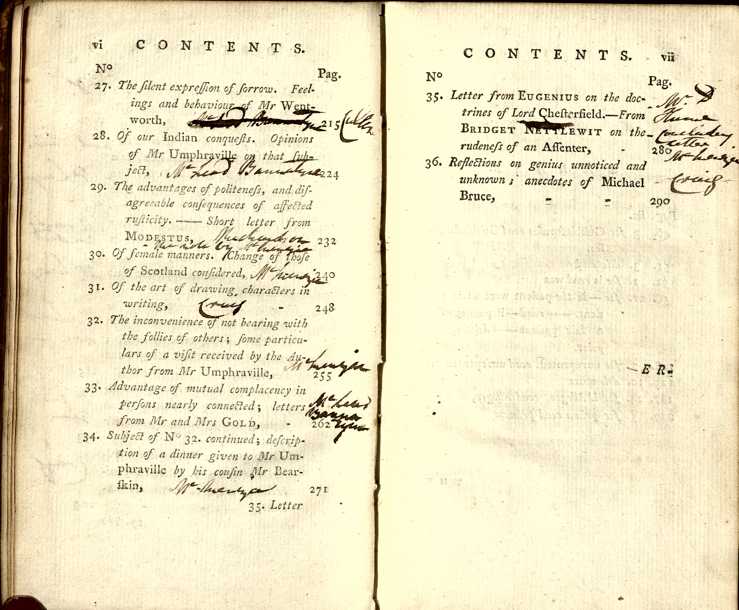 vi CONTENTS.
No Pag.
27. The ſilent expreſſion of ſorrow. Feel-
ings and behaviour of Mr Went-
worth, 215
28. Of our Indian conqueſts. Opinions
of Mr Umphraville on that ſub-
ject, Mc Leod Bannatyne 224
29. The advantages of politeneſs, and diſ-
agreeable conſequences of affected
ruſticity. —— Short letter from
MODESTUS, Richardson 232
the note by Mckenzie
30. Of female manners. Change of thoſe
of Scotland conſidered, Mckenzie 240
31. Of the art of drawing characters in
writing, Craig - 248
32. The inconvenience of not bearing with
the follies of others; ſome particu-
lars of a viſit received by the Au-
thor from Mr Umphraville, Mckenzie
255
33. Advantage of mutual complacency in
perſons nearly connected; letters Mc Leod
from Mr and Mrs GOLD, - 262 Banna
tyne
34. Subject of No 32. continued; deſcrip-
tion of a dinner given to Mr Um-
phraville by his couſin Mr Bear-
ſkin, Mckenzie 271
35. Letter
CONTENTS. vii
No Pag.
35. Letter from EUGENIUS on the doc- Mr D
trines of Lord Cheſterfield.—From Hume
BRIDGET NETTLEWIT on the concluding
rudeneſs of an Aſſenter, - 280 letter
Mckenzie
36. Reflections on genius unnoticed and
unknown; anecdotes of Michael Craig
Bruce, - - 290
—ER.